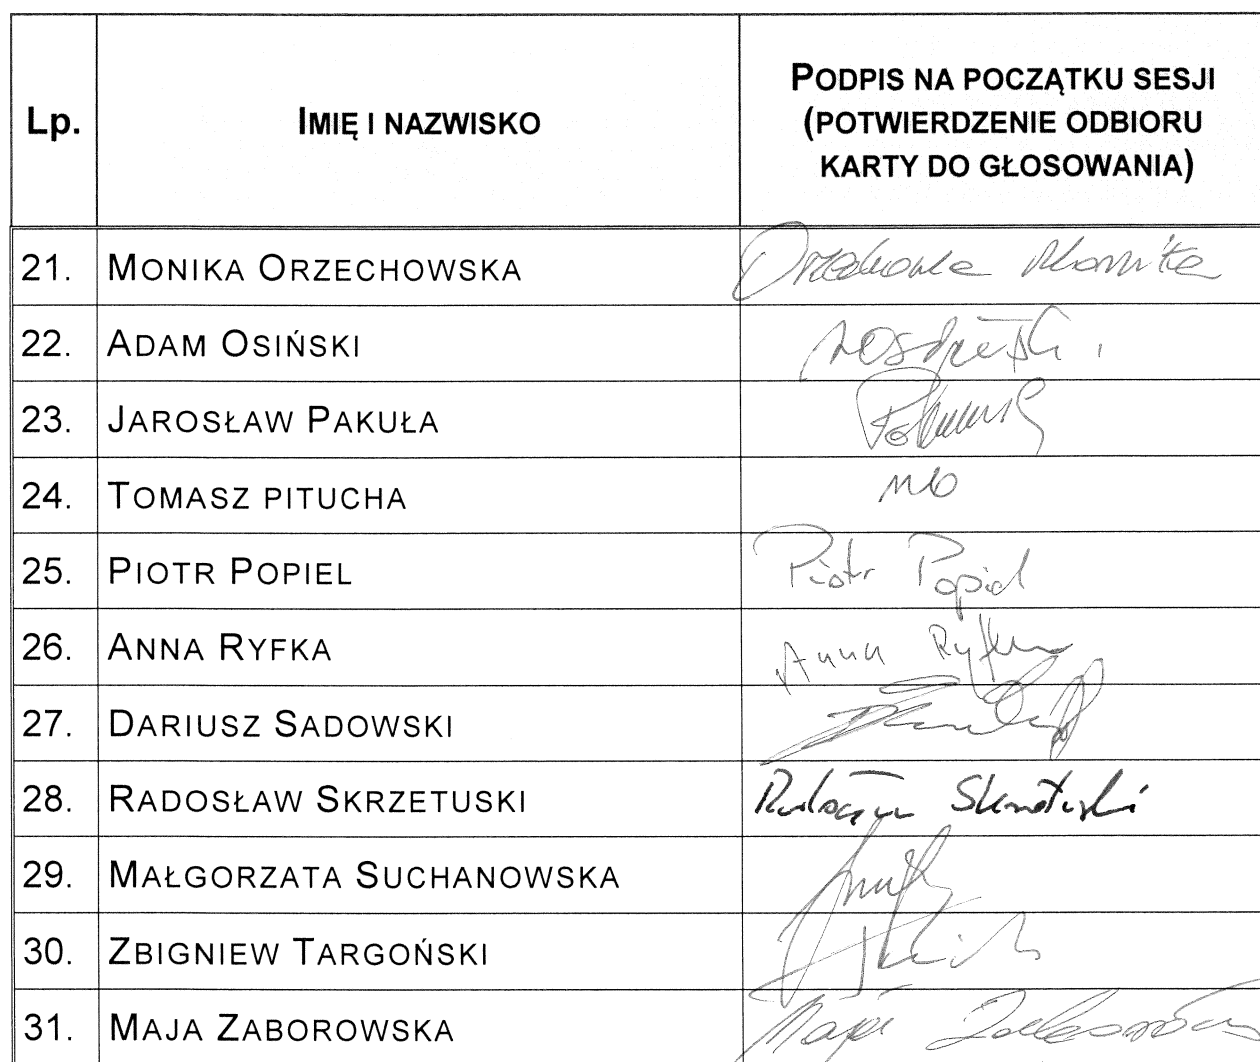 Lp.
IMIĘ I NAZWISKO
PODPIS NA POCZĄTKU SESJI
(POTWIERDZENIE ODBIORU
KARTY DO GŁOSOWANIA)
21. MONIKA ORZECHOWSKA Monika
22. ADAM OSIŃSKI
23. JAROSŁAW PAKUŁA
24. TOMASZ PITUCHA nb
25. PIOTR POPIEL Piotr Popiel
26. ANNA RYFKA Anna Ryfka
27. DARIUSZ SADOWSKI
28. RADOSŁAW SKRZETUSKI Radosław Skrzetuski
29. MAŁGORZATA SUCHANOWSKA
30. ZBIGNIEW TARGOŃSKI
31. MAJA ZABOROWSKA Maja